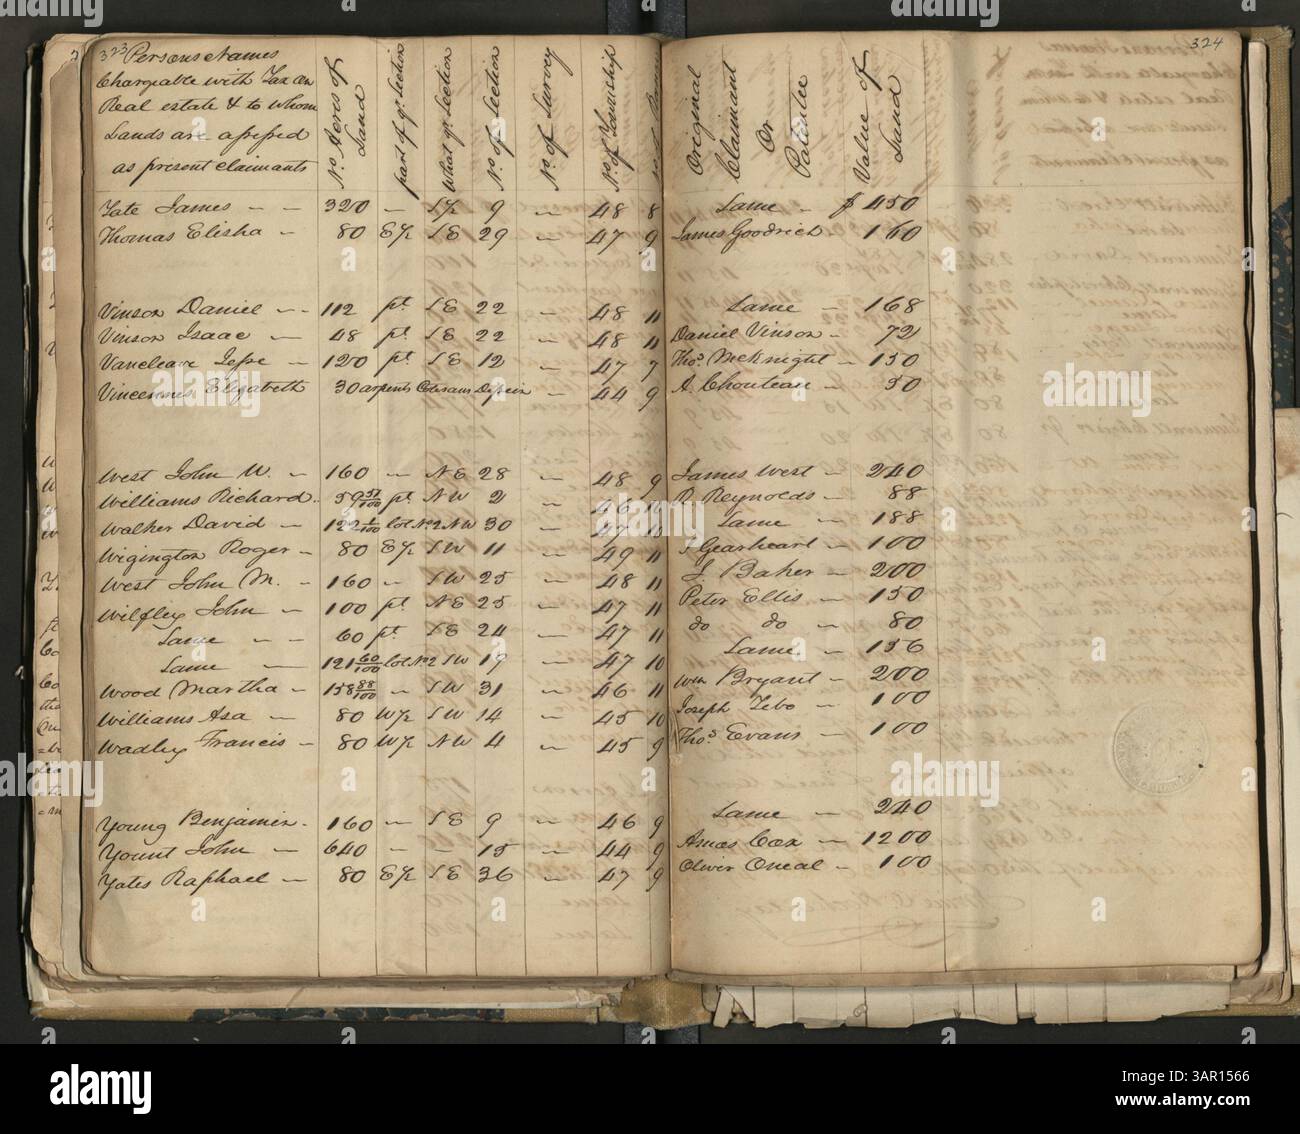 323
Persons Names
Chargeable with Tax on
Real estate & to whom
Lands are assessed
as present claimants
No Acres of Land
part of qr. Section
What qr Section
No of Section
No of Survey
No of Township
Original Claimant Or Patentee
Value of Land
324
Tate James — — 320 — S½ 9 — 48 8 Same — $ 450
Thomas Elisha — 80 E½ SE 29 — 47 9 James Goodrich 160
Vinson Daniel — 112 pt. SE 22 — 48 11 Same — 168
Vinson Isaac — 48 pt. SE 22 — 48 11 Daniel Vinson — 72
Vancleave Jesse — 120 pt. SE 12 — 47 7 Thos. McKnight — 150
Vincennus Elizabeth 30 arpents — 44 9 A. Chouteau — 30
West John W. — 160 — NE 28 — 48 9 James West — 240
Williams Richard 59 57/100 pt. NW 2 — 46 10 R. Reynolds — 88
Walker David — 122 lot No 2 NW 30 — 47 10 Same — 188
Wigington Roger — 80 E½ SW 11 — 49 11 Gearheart — 100
West John M. — 160 — SW 25 — 48 11 Baker — 200
Wilfley John — 100 pt. NE 25 — 47 11 Peter Ellis — 150
Same — — 60 pt. SE 24 — 47 11 do do — 80
Same — 121 60/100 lot No 2 SW 19 — 47 10 Same — 156
Wood Martha — 158 88/100 — SW 31 — 46 11 Wm Bryant — 200
Williams Asa — 80 W½ SW 14 — 45 10 Joseph Tebo — 100
Wadley Francis — 80 W½ NW 4 — 45 9 Thos. Evans — 100
Young Benjamin. 160 — SE 9 — 46 9 Same — 240
Yount John — 640 — — 15 — 44 9 Amos Cox — 1200
Yates Raphael — 80 E½ SE 36 — 47 9 Oliver Oneal — 100
alamy
a
Image ID: 3AR1566
www.alamy.com